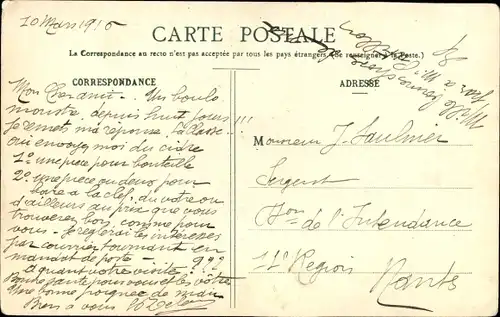 10 Mars 1916
CARTE POSTALE
La Correspondance au recto n'est pas acceptée par tous les pays étrangers (Se renseigner à la Poste.)
CORRESPONDANCE
ADRESSE
Mon Cher ami. Un boulo
monstre depuis huit jours !!!
Je remets ma réponse. La classe
oui envoyez moi du cidre
1º une pièce pour bouteille
2º une pièce ou deux pour
boire à la clef, du vôtre ou
d'ailleurs au prix que vous
trouverez bon comme pour
vous. Je réglerai les intéressés
par courrier tournant en
mandat de poste - ???
à quand votre visite!
Bonne santé pour vous et les vôtres
Une bonne poignée de main
Bien à vous
Monsieur J. Saulnier
Sergent
Son de l'Intendance
11e Région
Nantes